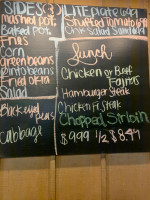 SIDES
mashed pot.
Baked pot.
Fries
green beans
pinto beans
Fried okra
Salad
Black eyed
peas
Cabbage
LITE plate 6.99
Stuffed Tomato 6.99
Chk Salad Sandwich
Lunch
Chicken or Beef
Fajitas
Hamburger Steak
Chicken F. Steak
Chopped Sirloin
$9.99 1/2 $8.49